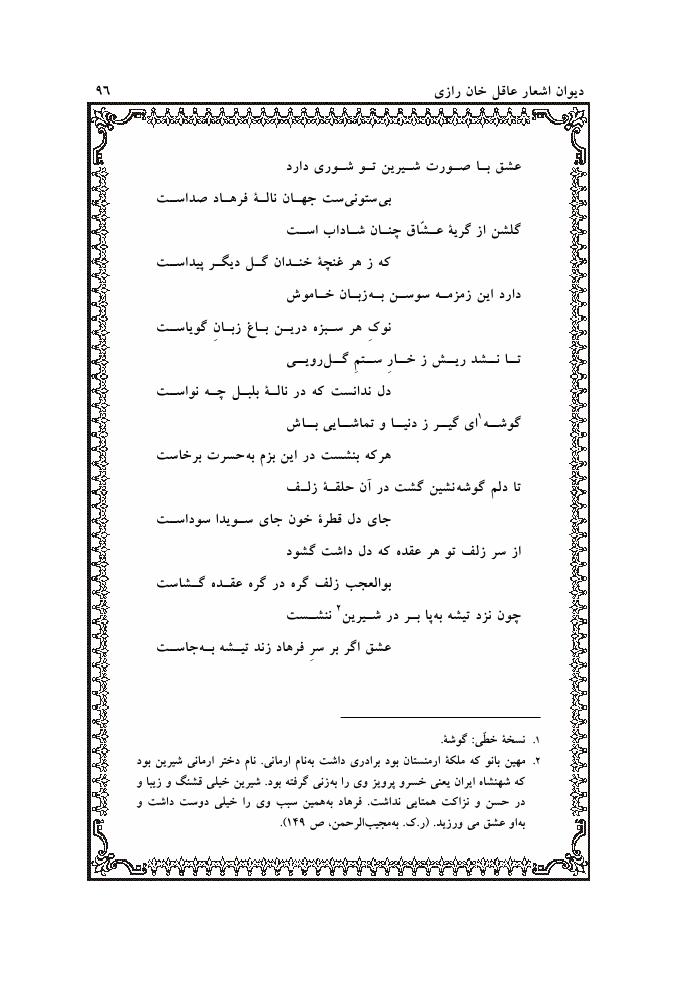 دیوان اشعار عاقل خان رازی ۹۶
عشق با صورت شیرین تو شوری دارد
بی‌ستونی‌ست جهان نالۀ فرهاد صداست
گلشن از گریۀ عشّاق چنان شاداب است
که ز هر غنچۀ خندان گل دیگر پیداست
دارد این زمزمه سوسن به‌زبان خاموش
نوکِ هر سبزه درین باغ زبانِ گویاست
تا نشد ریش ز خارِ ستمِ گل‌رویی
دل ندانست که در نالۀ بلبل چه نواست
گوشه۱ای گیر ز دنیا و تماشایی باش
هرکه بنشست در این بزم به‌حسرت برخاست
تا دلم گوشه‌نشین گشت در آن حلقۀ زلف
جای دل قطرۀ خون جای سویدا سوداست
از سر زلف تو هر عقده که دل داشت گشود
بوالعجب زلف گره در گره عقده گشاست
چون نزد تیشه به‌پا بر در شیرین۲ ننشست
عشق اگر بر سرِ فرهاد زند تیشه به‌جاست
۱. نسخۀ خطّی: گوشۀ.
۲. مهین بانو که ملکۀ ارمنستان بود برادری داشت به‌نام ارمانی. نام دختر ارمانی شیرین بود
که شهنشاه ایران یعنی خسرو پرویز وی را به‌زنی گرفته بود. شیرین خیلی قشنگ و زیبا و
در حسن و نزاکت همتایی نداشت. فرهاد به‌همین سبب وی را خیلی دوست داشت و
به‌او عشق می ورزید. (ر.ک. به‌مجیب‌الرحمن، ص ۱۴۹).